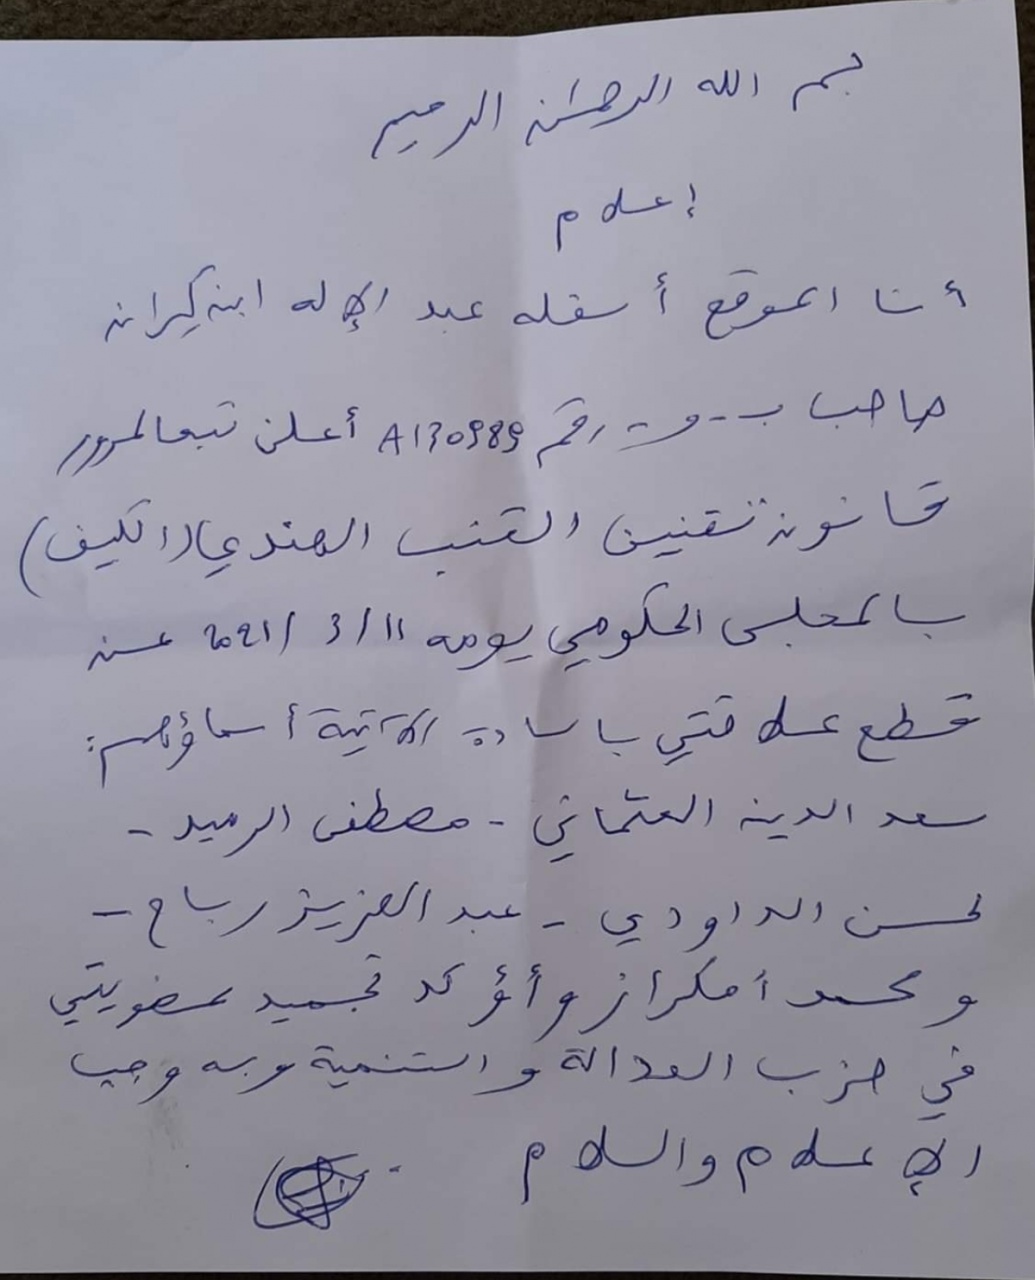 بسم الله الرحمان الرحيم
إعلام
أنا الموقع أسفله عبد الإله ابن كيران
صاحب ب.و. رقم A130989 أعلن تبعا لمرور
قانون تقنين القنب الهندي (الكيف)
بالمجلس الحكومي يومه 11/3/2021 عن
قطع علاقتي بالسادة الآتية أسماؤهم:
سعد الدين العثماني - مصطفى الرميد -
لحسن الداودي - عبد العزيز رباح -
ومحمد أمكراز وأؤكد تجميد عضويتي
في حزب العدالة والتنمية وبه وجب
الإعلام والسلام